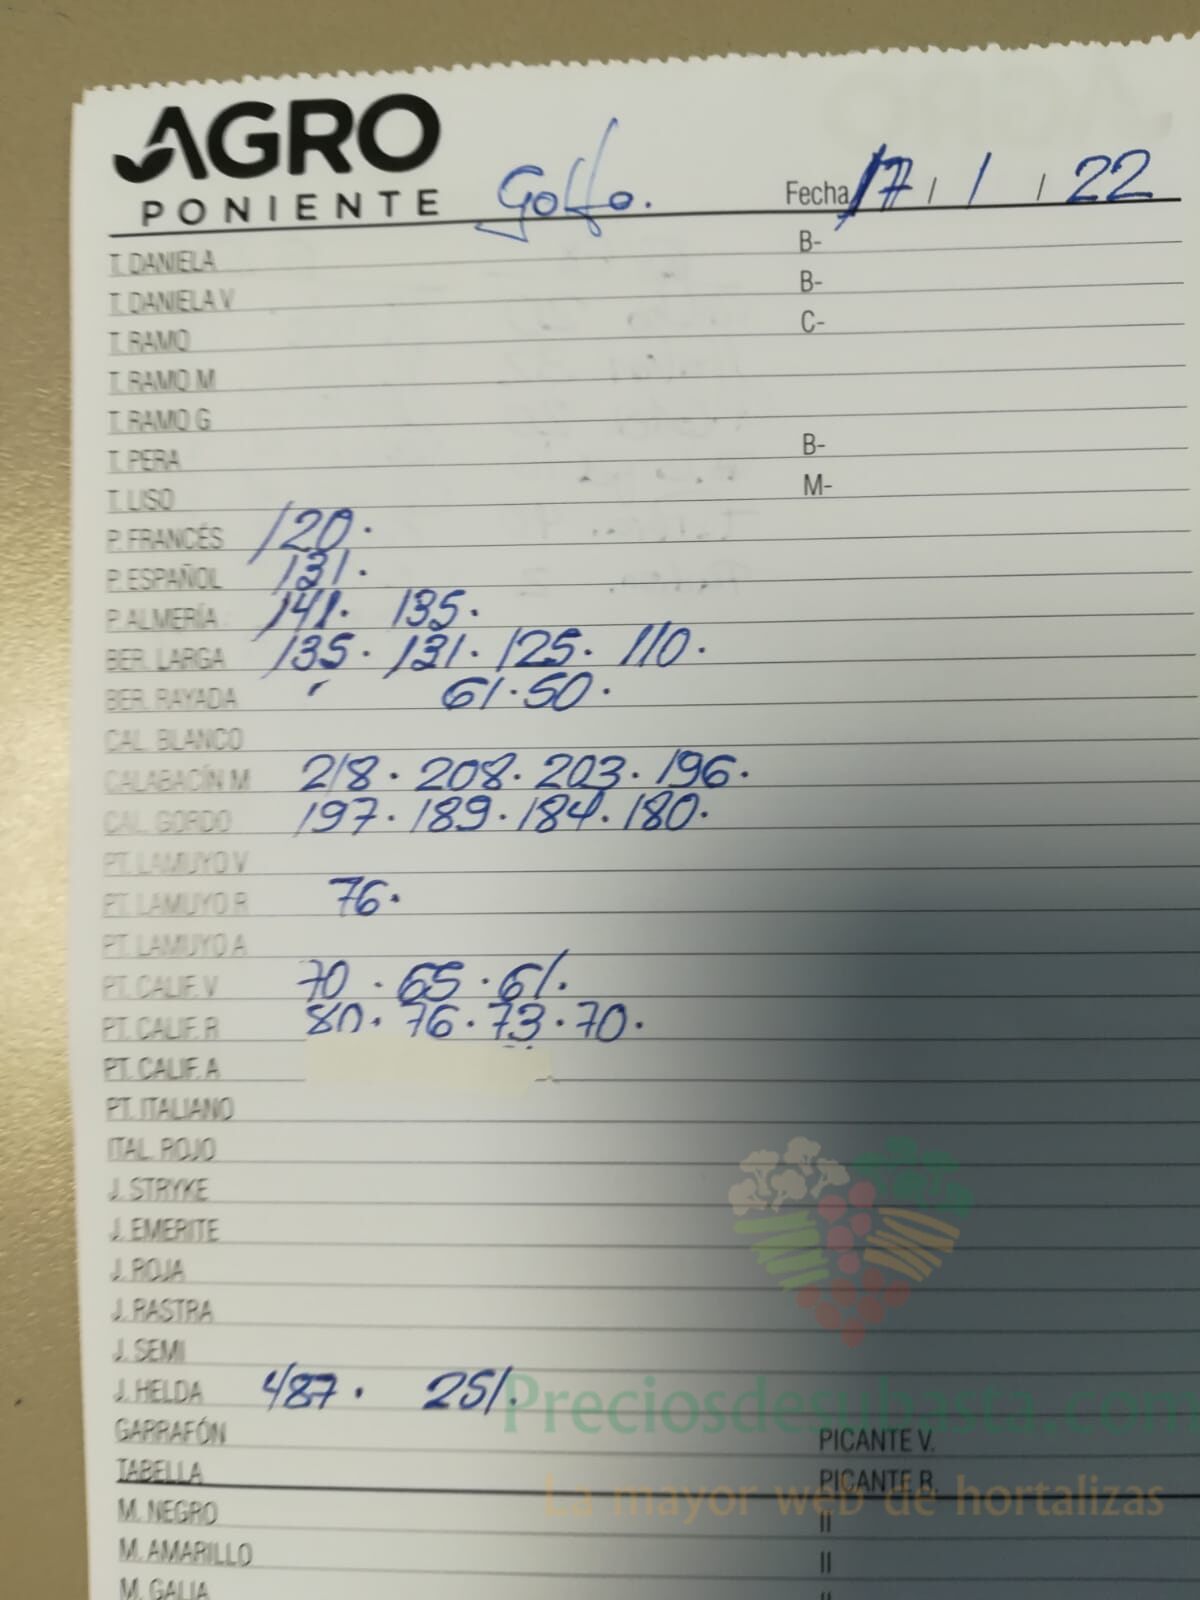 AGRO
PONIENTE
Golfo.
Fecha 17 / 1 / 22
T. DANIELA B-
T. DANIELA V B-
T. RAMO C-
T. RAMO M
T. RAMO G
T. PERA B-
T. LISO M-
P. FRANCÉS 120.
P. ESPAÑOL 131.
P. ALMERÍA 141. 135.
BER. LARGA 135. 131. 125. 110.
BER. RAYADA 61. 50.
CAL. BLANCO
CALABACÍN M 218. 208. 203. 196.
CAL. GORDO 197. 189. 184. 180.
PT. LAMUYO V
PT. LAMUYO R 76.
PT. LAMUYO A
PT. CALIF. V 70. 65. 61.
PT. CALIF. R 80. 76. 73. 70.
PT. CALIF. A
PT. ITALIANO
ITAL. ROJO
J. STRYKE
J. EMERITE
J. ROJA
J. RASTRA
J. SEMI
J. HELDA 487. 251.
Preciosdesubasta.com
GARRAFÓN PICANTE V.
TABELLA PICANTE R.
La mayor web de hortalizas
M. NEGRO II
M. AMARILLO II
M. GALIA II